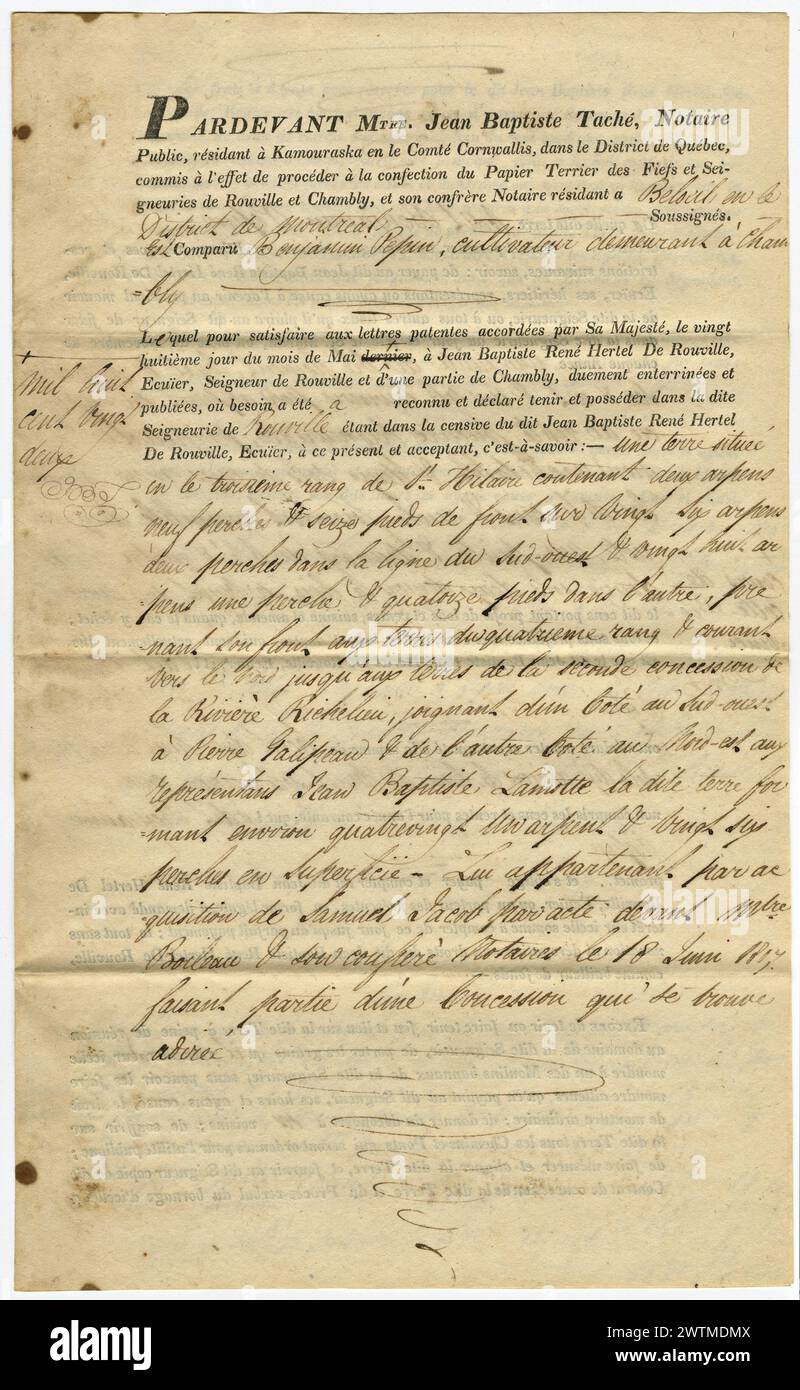 PARDEVANT MTRE. Jean Baptiste Taché, Notaire
Public, résidant à Kamouraska en le Comté Cornwallis, dans le District de Québec,
commis à l'effet de procéder à la confection du Papier Terrier des Fiefs et Sei-
gneuries de Rouville et Chambly, et son confrère Notaire résidant a Belœil en le
District de Montreal Soussignés.
Est Comparu Benjamin Pepin, cultivateur demeurant à Cham
=bly
Lequel pour satisfaire aux lettres patentes accordées par Sa Majesté, le vingt
huitième jour du mois de Mai dernier, à Jean Baptiste René Hertel De Rouville,
Ecuïer, Seigneur de Rouville et d'une partie de Chambly, duement enterrinées et
publiées, où besoin a été a reconnu et déclaré tenir et posséder dans la dite
Seigneurie de Rouville étant dans la censive du dit Jean Baptiste René Hertel
De Rouville, Ecuïer, à ce présent et acceptant, c'est-à-savoir :— une terre située
+
mil huit
cent vingt
deux
en le troisième rang de St. Hilaire contenant deux arpens
neuf perches & seize pieds de front sur vingt six arpens
deux perches dans la ligne du Sud-ouest & vingt huit ar
pens une perche & quatorze pieds dans l'autre, pre
-nant son front aux terres du quatrieme rang & courant
vers le Nord jusqu'aux terres de la seconde concession de
la Rivière Richelieu, joignant d'un Coté au Sud-ouest
à Pierre Galipeau & de l'autre Coté au Nord-est aux
représentans Jean Baptiste Lamotte la dite terre for
=mant environ quatrevingt un arpent & vingt six
perches en Superficie - Lui appartenant par ac
quisition de Samuel Jacob par acte devant Mtre
Boileau & son confrère Notaires le 18 Juin 1817.
faisant partie d'une Concession qui se trouve
adirée
alamy
alamy
Image ID: 2WTMDMX
www.alamy.com